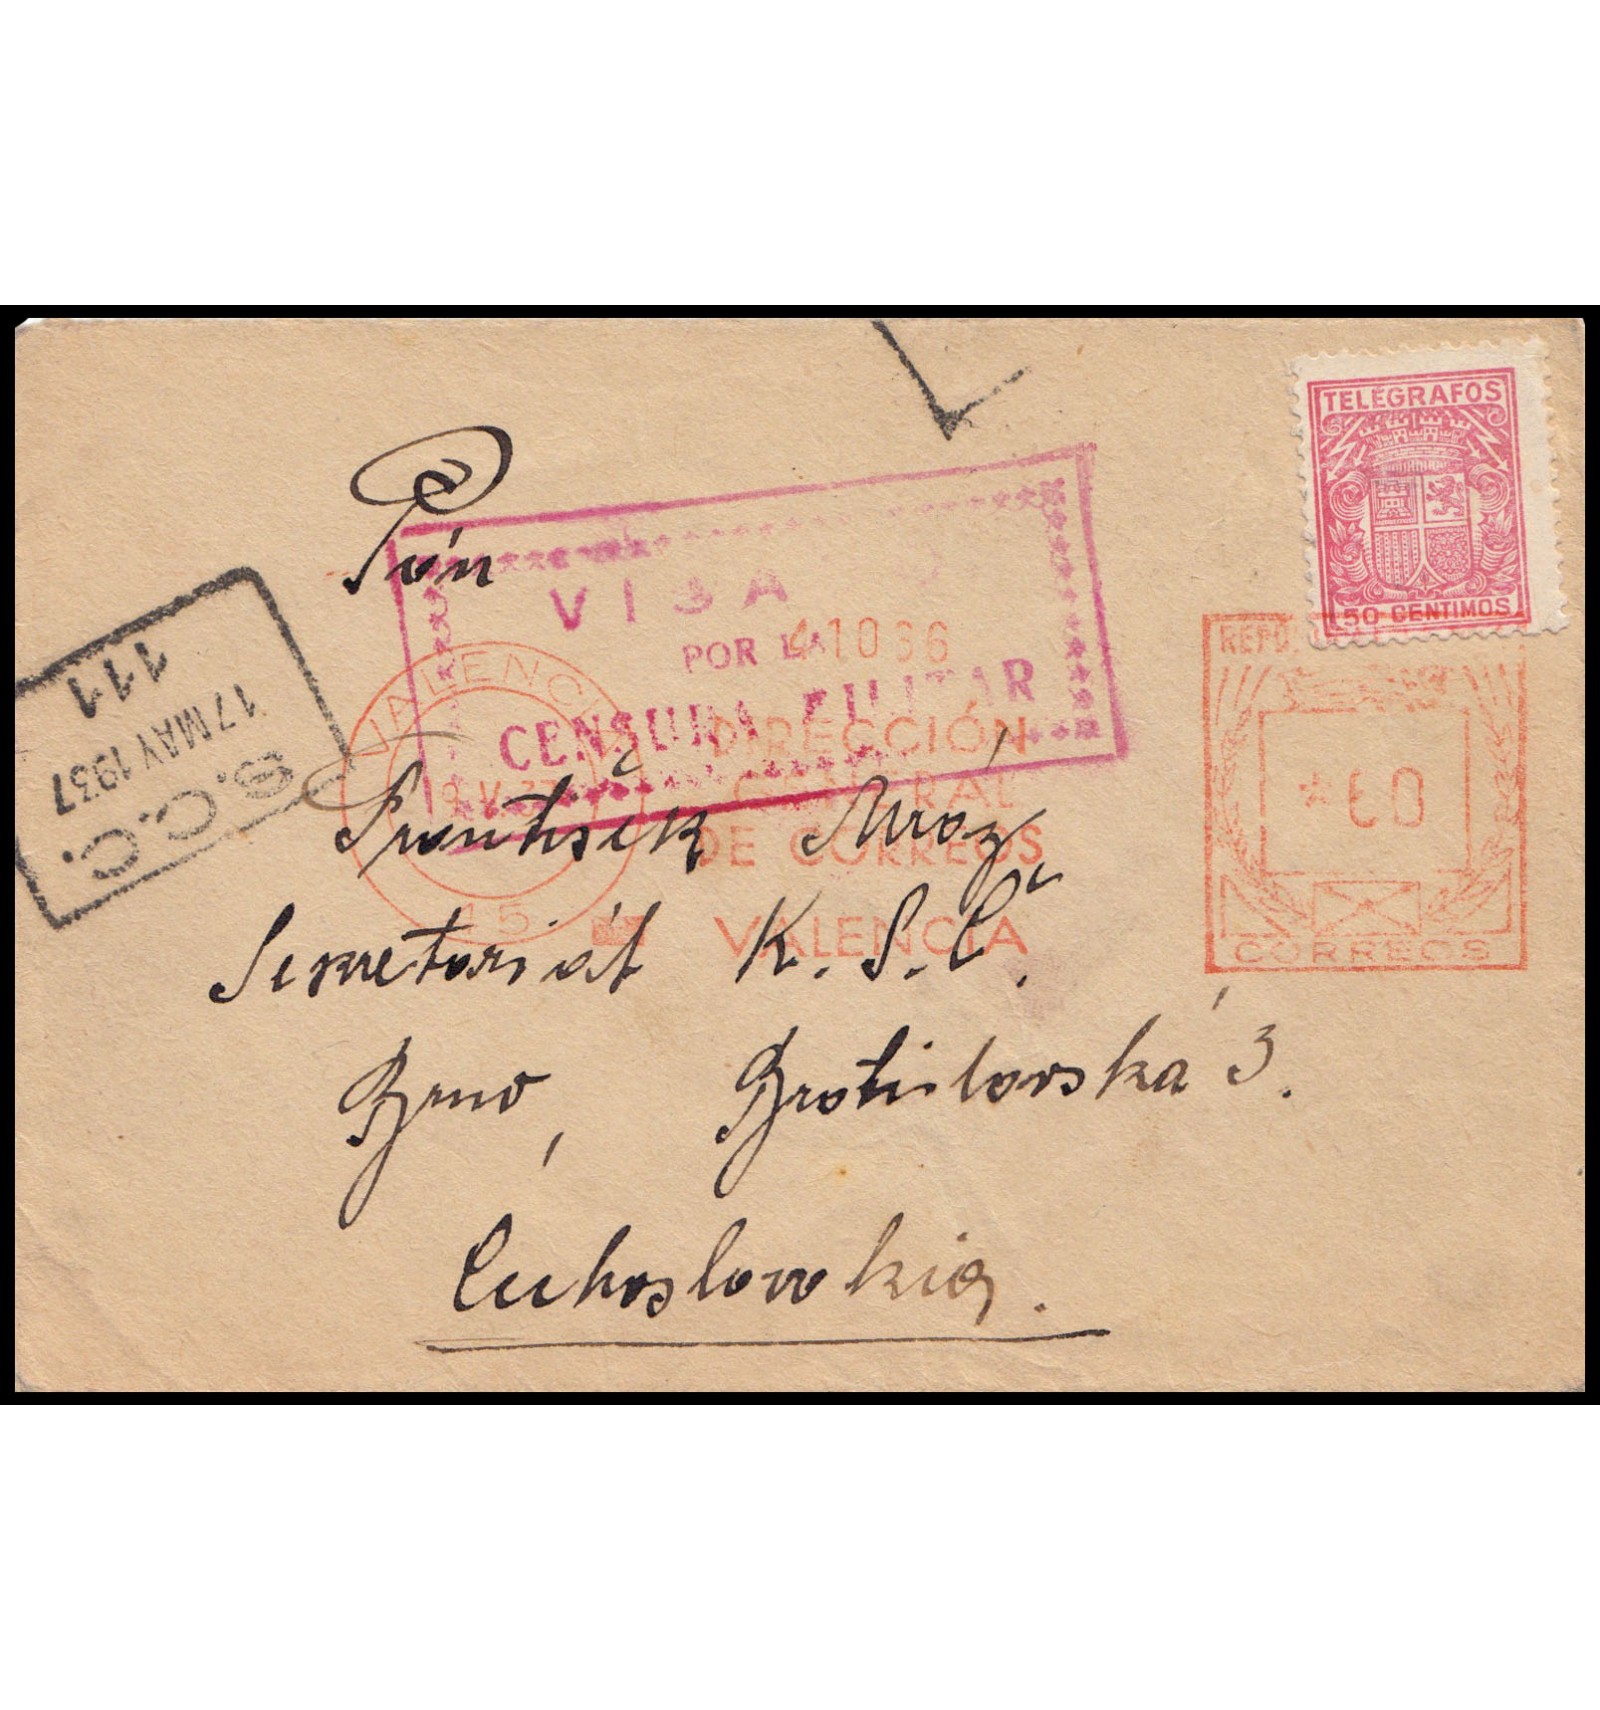 TELEGRAFOS
50 CENTIMOS
Pán
VISA
POR LA
CENSURA MILITAR
41066
VALENCIA
15
DIRECCIÓN
GENERAL
DE CORREOS
VALENCIA
*60
CORREOS
S.C.C.
17 MAY 1937
111
František Mráz
Sekretariát K.S.Č.
Brno, Bratislavská 3.
Čuhoslovakia.